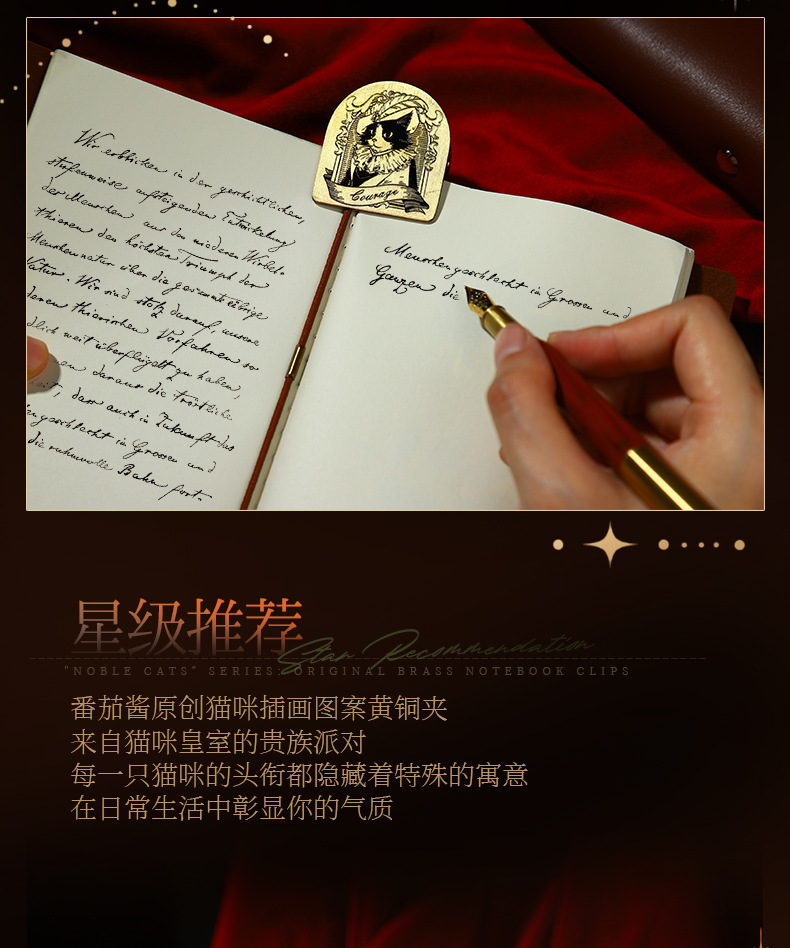 Wir erblicken in der geschichtlichen,
stufenweise aufsteigenden Entwickelung
der Menschen aus den niederen Wirbel-
thieren den höchsten Triumph der
Menschennatur über die gesammte übrige
Natur. Wir sind stolz darauf, unsere
deren thierischen Vorfahren so
dlich weit überflügelt zu haben,
en daraus die tröstliche
eit, dass auch in Zukunft das
engeschlecht in Grossen und
die ruhmvolle Bahn fort-
Courage
Menschengeschlecht in Grossen und
Ganzen die
星级推荐
Star Recommendation
"NOBLE CATS" SERIES: ORIGINAL BRASS NOTEBOOK CLIPS
番茄酱原创猫咪插画图案黄铜夹
来自猫咪皇室的贵族派对
每一只猫咪的头衔都隐藏着特殊的寓意
在日常生活中彰显你的气质